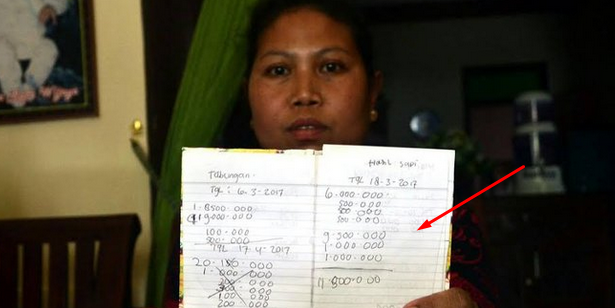 Tabungan
TgL : 6.3-2017
1.8500.000
19000.000
100.000
TgL 17-4-2017
20.180.000
1.000.000
100.000
200.000
Hasil Sapi
TgL 18-3-2017
6.000.000
500.000
500.000
500.000
9.300.000
1.000.000
1.000.000
11.300.000